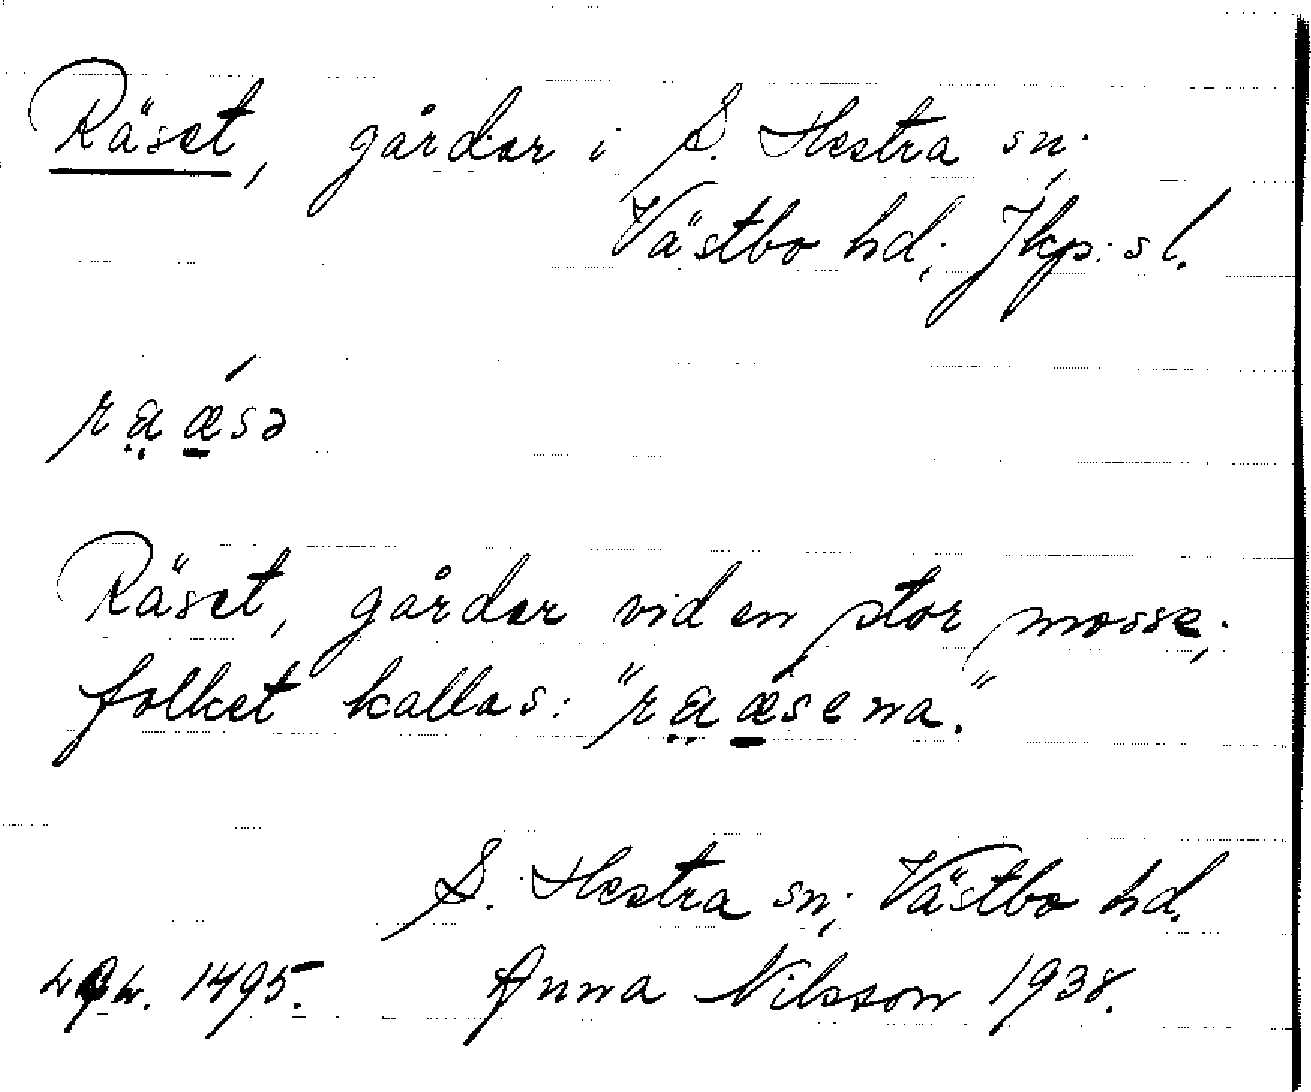 Räset, gårdar i S. Hestra sn;
Västbo hd; Jkp:s l.
ra̤ǽ̱sə
Räset, gårdar vid en stor mosse;
folket kallas: "ra̤ǽ̱sena."
S. Hestra sn; Västbo hd.
1495. Anna Nilsson 1938.